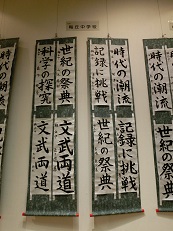 梅丘中学校
時代の潮流
文武両道
時代の潮流
記録に挑戦
記録に挑戦
世紀の祭典
世紀の祭典
科学の探究
文武両道
文武両道
時代の潮流
世紀の祭典